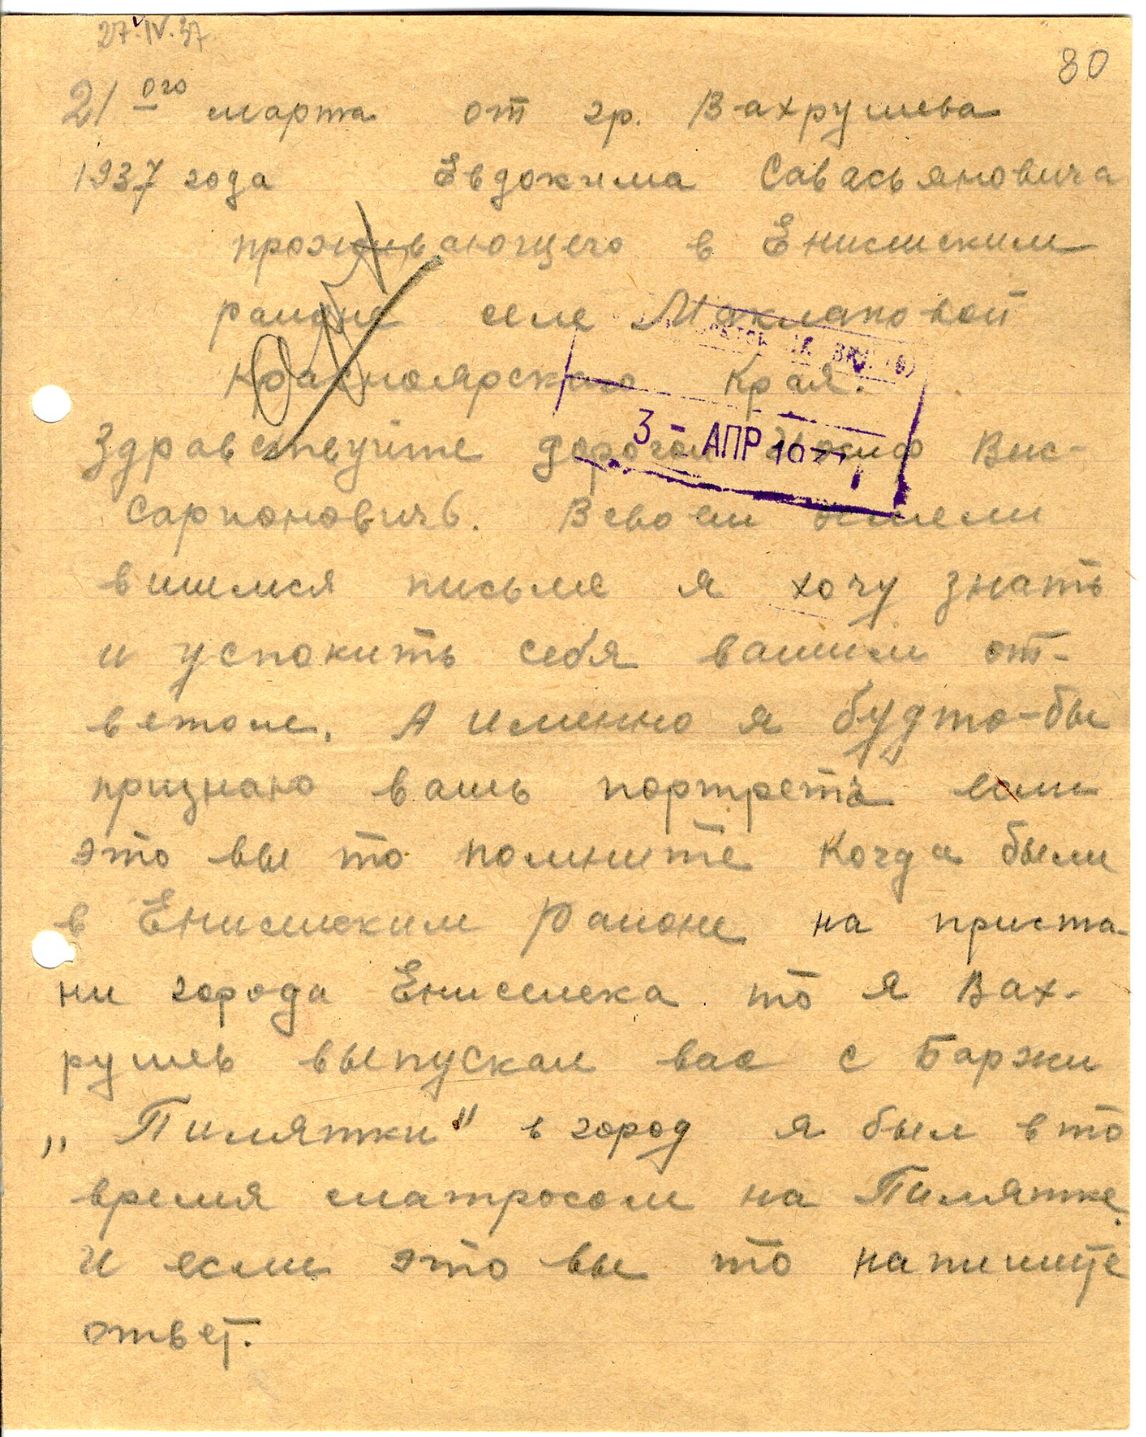 27.IV.37
80
21 ого марта от гр. Вахрушева
1937 года Евдокима Савасьяновича
проживающего в Енисииским
раионе селе Маклаковой
Красноярского Края.
3 - АПР 1937
Здравствуйте дорогой Иосиф Вис-
сарионовичь. В своем осмели
вишмся письме я хочу знать
и успокить себя вашим от-
ветом. А именно я будто-бы
признаю вашь портретъ если
это вы то помните когда были
в Енисииским Раионе на приста-
ни города Енисииска то я Вах-
рушев выпускал вас с Баржи
„Пимятки" в город я был в то
время матросом на Пимятке.
И если это вы то напишите
ответ.